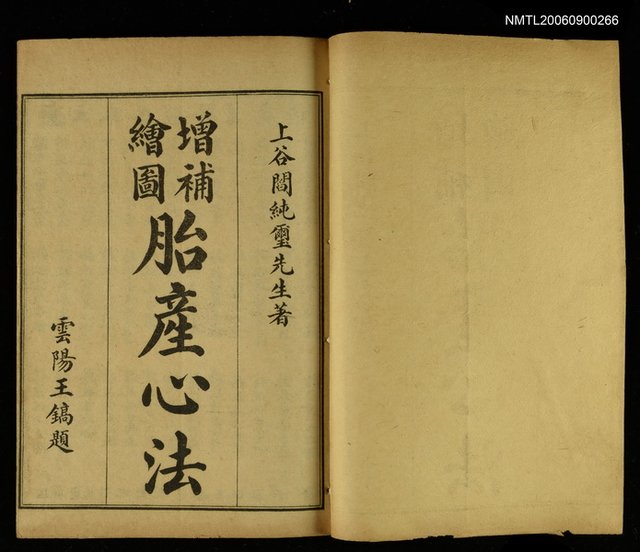 NMTL20060900266
上谷閻純璽先生著
增補
繪圖
胎產心法
雲陽王鎬題